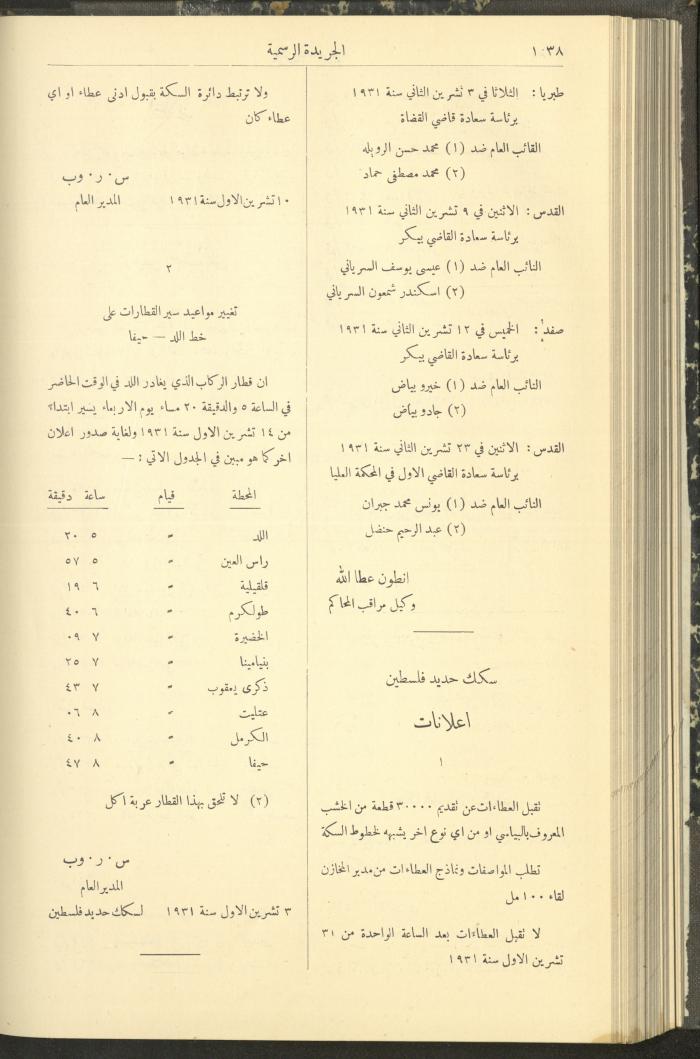 ١٠٣٨
الجريدة الرسمية
طبريا : الثلاثا في ٣ تشرين الثاني سنة ١٩٣١
برئاسة سعادة قاضي القضاة
القائب العام ضد (١) محمد حسن الرويله
(٢) محمد مصطفى حماد
القدس : الاثنين في ٩ تشرين الثاني سنة ١٩٣١
برئاسة سعادة القاضي بيكر
النائب العام ضد (١) عيسى يوسف السرياني
(٢) اسكندر شمعون السرياني
صفد : الخميس في ١٢ تشرين الثاني سنة ١٩٣١
برئاسة سعادة القاضي بيكر
النائب العام ضد (١) خيرو بياض
(٢) جادو بياض
القدس : الاثنين في ٢٣ تشرين الثاني سنة ١٩٣١
برئاسة سعادة القاضي الاول في المحكمة العليا
النائب العام ضد (١) يونس محمد جبران
(٢) عبد الرحيم حنضل
انطون عطا الله
وكيل مراقب المحاكم
سكك حديد فلسطين
اعلانات
١
تقبل العطاءات عن تقديم ٣٠٠٠٠ قطعة من الخشب
المعروف بالبياسي او من اي نوع اخر يشبهه لخطوط السكة
تطلب المواصفات ونماذج العطاءات من مدير المخازن
لقاء ١٠٠ مل
لا تقبل العطاءات بعد الساعة الواحدة من ٣١
تشرين الاول سنة ١٩٣١
ولا ترتبط دائرة السكة بقبول ادنى عطاء او اي
عطاء كان
س . ر . وب
١٠ تشرين الاول سنة ١٩٣١ المدير العام
٢
تغيير مواعيد سير القطارات على
خط اللد — حيفا
ان قطار الركاب الذي يغادر اللد في الوقت الحاضر
في الساعة ٥ والدقيقة ٢٠ مساء يوم الاربعاء يسير ابتداء
من ١٤ تشرين الاول سنة ١٩٣١ ولغاية صدور اعلان
اخر كما هو مبين في الجدول الاتي : —
المحطة قيام ساعة دقيقة
اللد " ٥ ٢٠
راس العين " ٥ ٥٧
قلقيلية " ٦ ١٩
طولكرم " ٦ ٤٠
الخضيرة " ٧ ٠٩
بنيامينا " ٧ ٢٥
ذكرى يعقوب " ٧ ٤٣
عتليت " ٨ ٠٦
الكرمل " ٨ ٤٠
حيفا " ٨ ٤٧
(٢) لا تلحق بهذا القطار عربة اكل
س . ر . وب
المدير العام
٣ تشرين الاول سنة ١٩٣١ لسكك حديد فلسطين